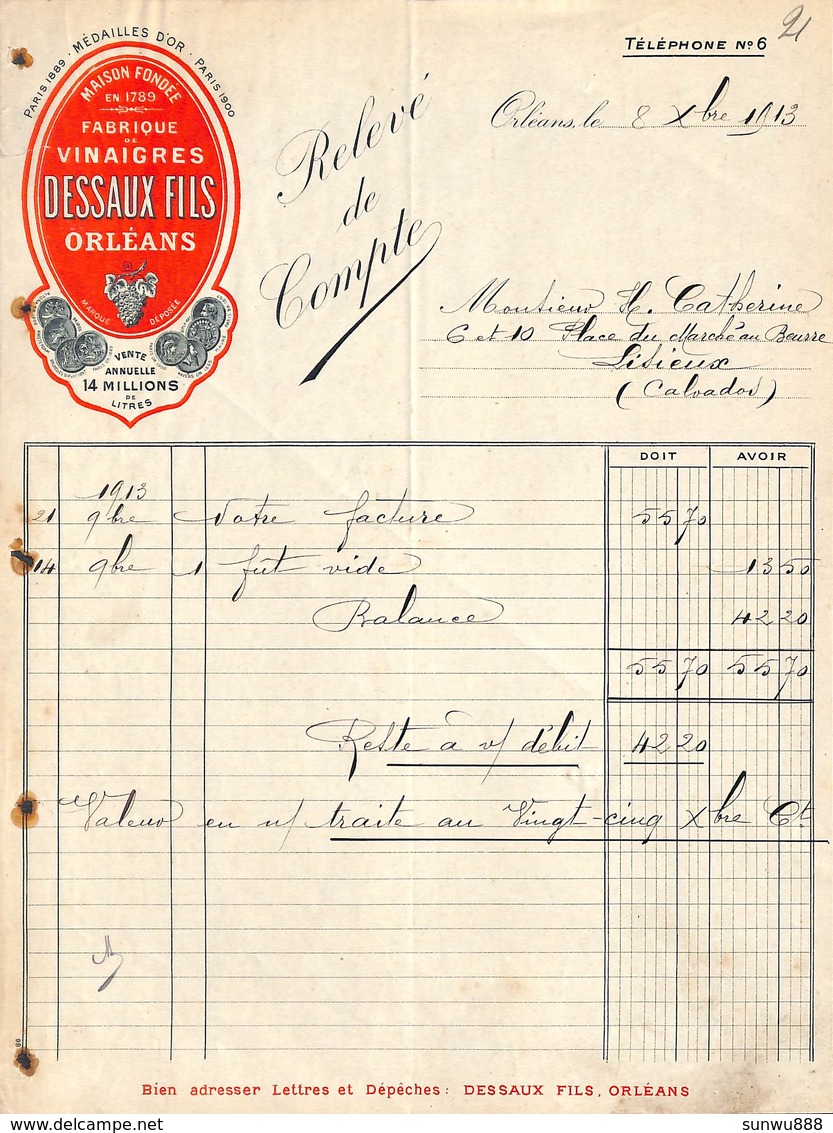 21
TÉLÉPHONE Nº 6
PARIS 1889 · MÉDAILLES D'OR · PARIS 1900
MAISON FONDÉE
EN 1789
FABRIQUE
DE
VINAIGRES
DESSAUX FILS
ORLÉANS
MARQUE DÉPOSÉE
VENTE
ANNUELLE
14 MILLIONS
DE
LITRES
Relevé
de
Compte
Orléans, le 8 Xbre 1913
Monsieur H. Catherine
6 et 10 Place du Marché au Beurre
Lisieux
(Calvados)
DOIT AVOIR
1913
21 9bre Notre facture 55 70
14 9bre 1 fût vide 13 50
Balance 42 20
55 70 55 70
Reste à v/ débit 42 20
Valeur en n/ traite au Vingt-cinq Xbre Ct
86
Bien adresser Lettres et Dépêches : DESSAUX FILS, ORLÉANS
delcampe.net
sunwu888